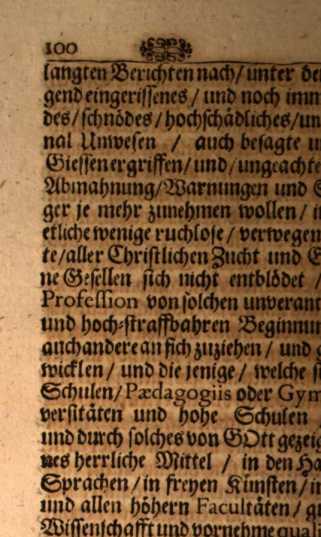 100
langten Berichten nach/ unter de
gend eingerissenes / und noch imm
des/ schnödes/ hochschädliches/ un
nal Unwesen / auch besagte u
Giessen ergriffen/ und/ ungeachte
Abmahnung/ Warnungen und
ger je mehr zunehmen wollen/ i
etliche wenige ruchlose/ verwegen
te/ aller Christlichen Zucht und E
ne Gesellen sich nicht entblödet /
Profession von solchen unverant
und hoch-straffbahren Beginnun
auch andere an sich zuziehen/ und
wicklen/ und die jenige/ welche s
Schulen/ Pædagogiis oder Gym
versitäten und hohe Schulen
und durch solches von GOtt gezeig
nes herrliche Mittel / in den Ha
Sprachen/ in freyen Künsten/ i
und allen höhern Facultäten/ q
Wissenschafft und vornehme quali